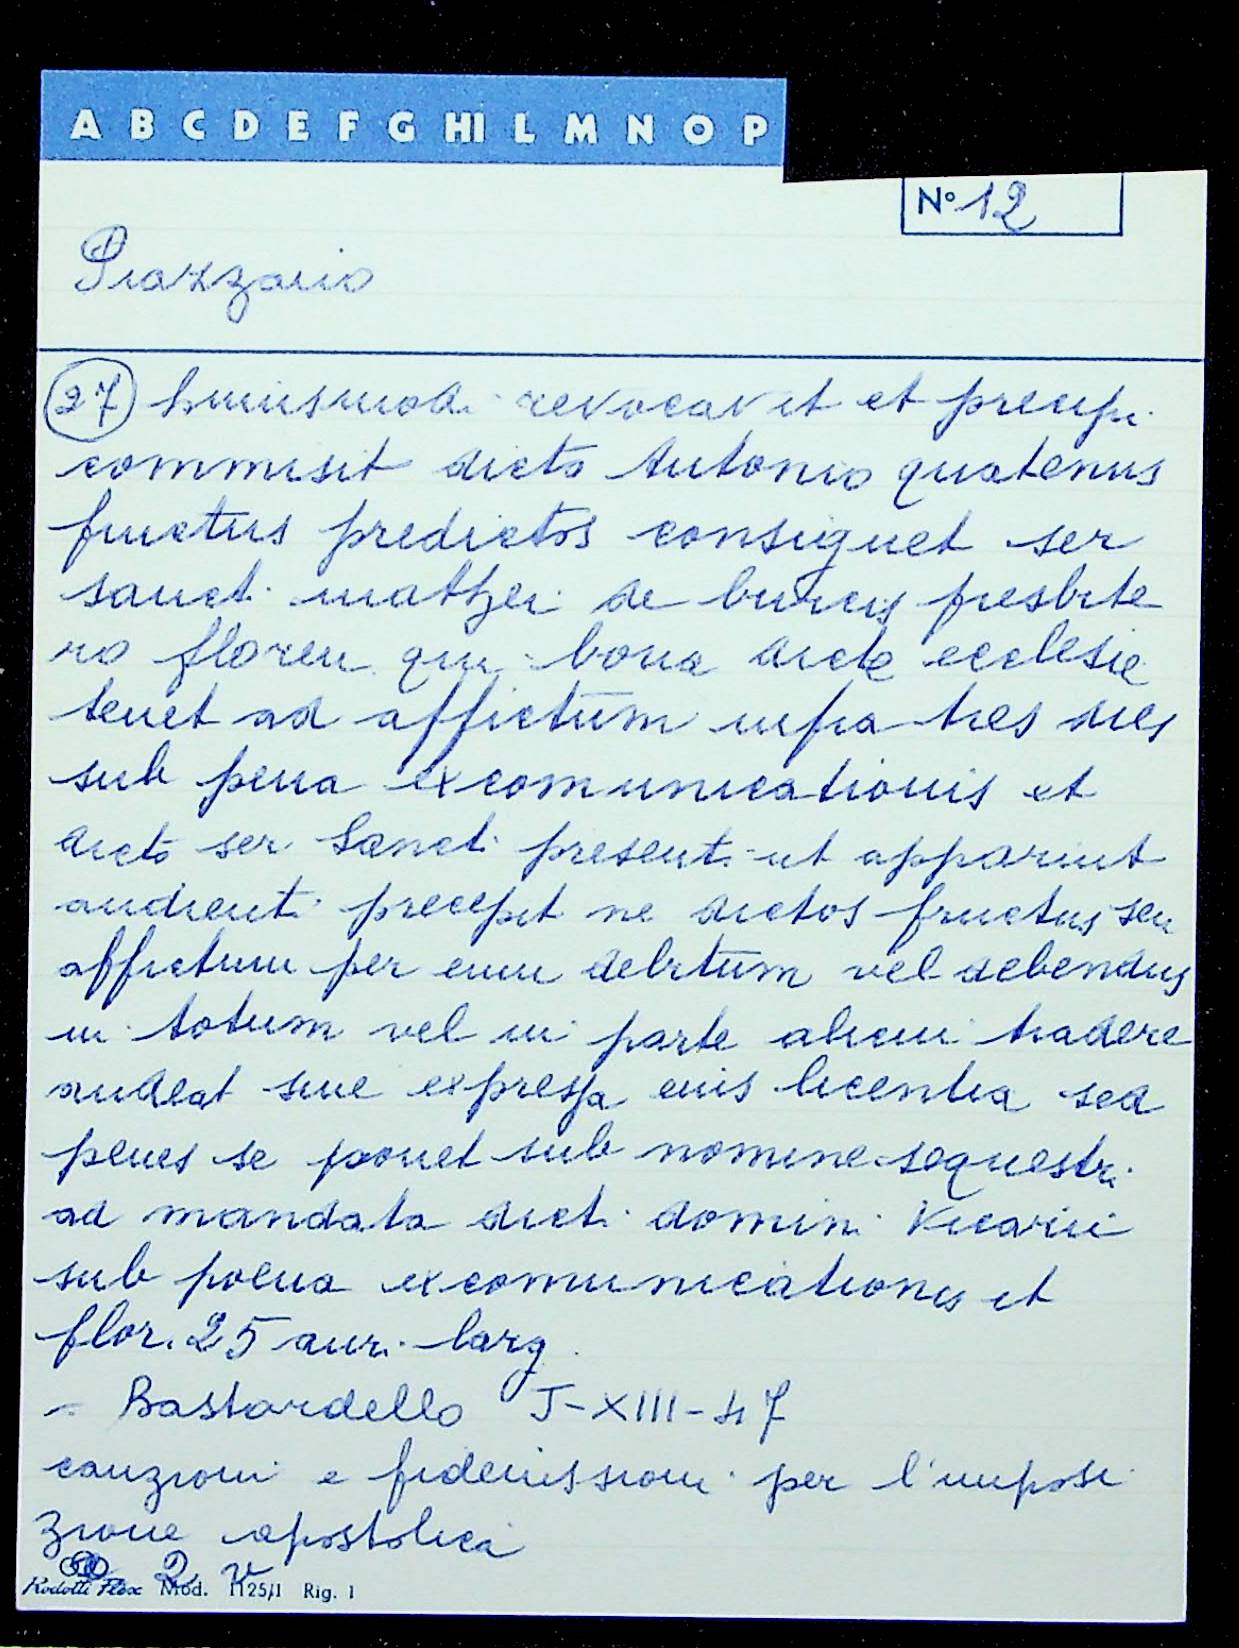 A B C D E F G HI L M N O P
N° 12
Piazzario
27 huiusmodi revocavit et precipi
commisit dicto Antonio quatenus
fructus predictos consignet ser
sancti mathei de burcis presbite
ro floren qui bona dicte ecclesie
tenet ad affictum infra tres dies
sub pena excomunicationis et
dicto ser Sancti presenti ut apparuit
audienti precepit ne dictos fructus seu
affictum per eum debitum vel debendus
in totum vel in parte alicui tradere
audeat sine expressa eius licentia sed
penes se ponet sub nomine sequestri
ad mandata dicti domini Vicarii
sub poena excomunicationis et
flor. 25 aur. larg.
- Bastardello J-XIII-47
cauzioni e fideiussioni per l'imposi
zione apostolica
2 v
Rodotti Flex Mod. 1125/1 Rig. 1